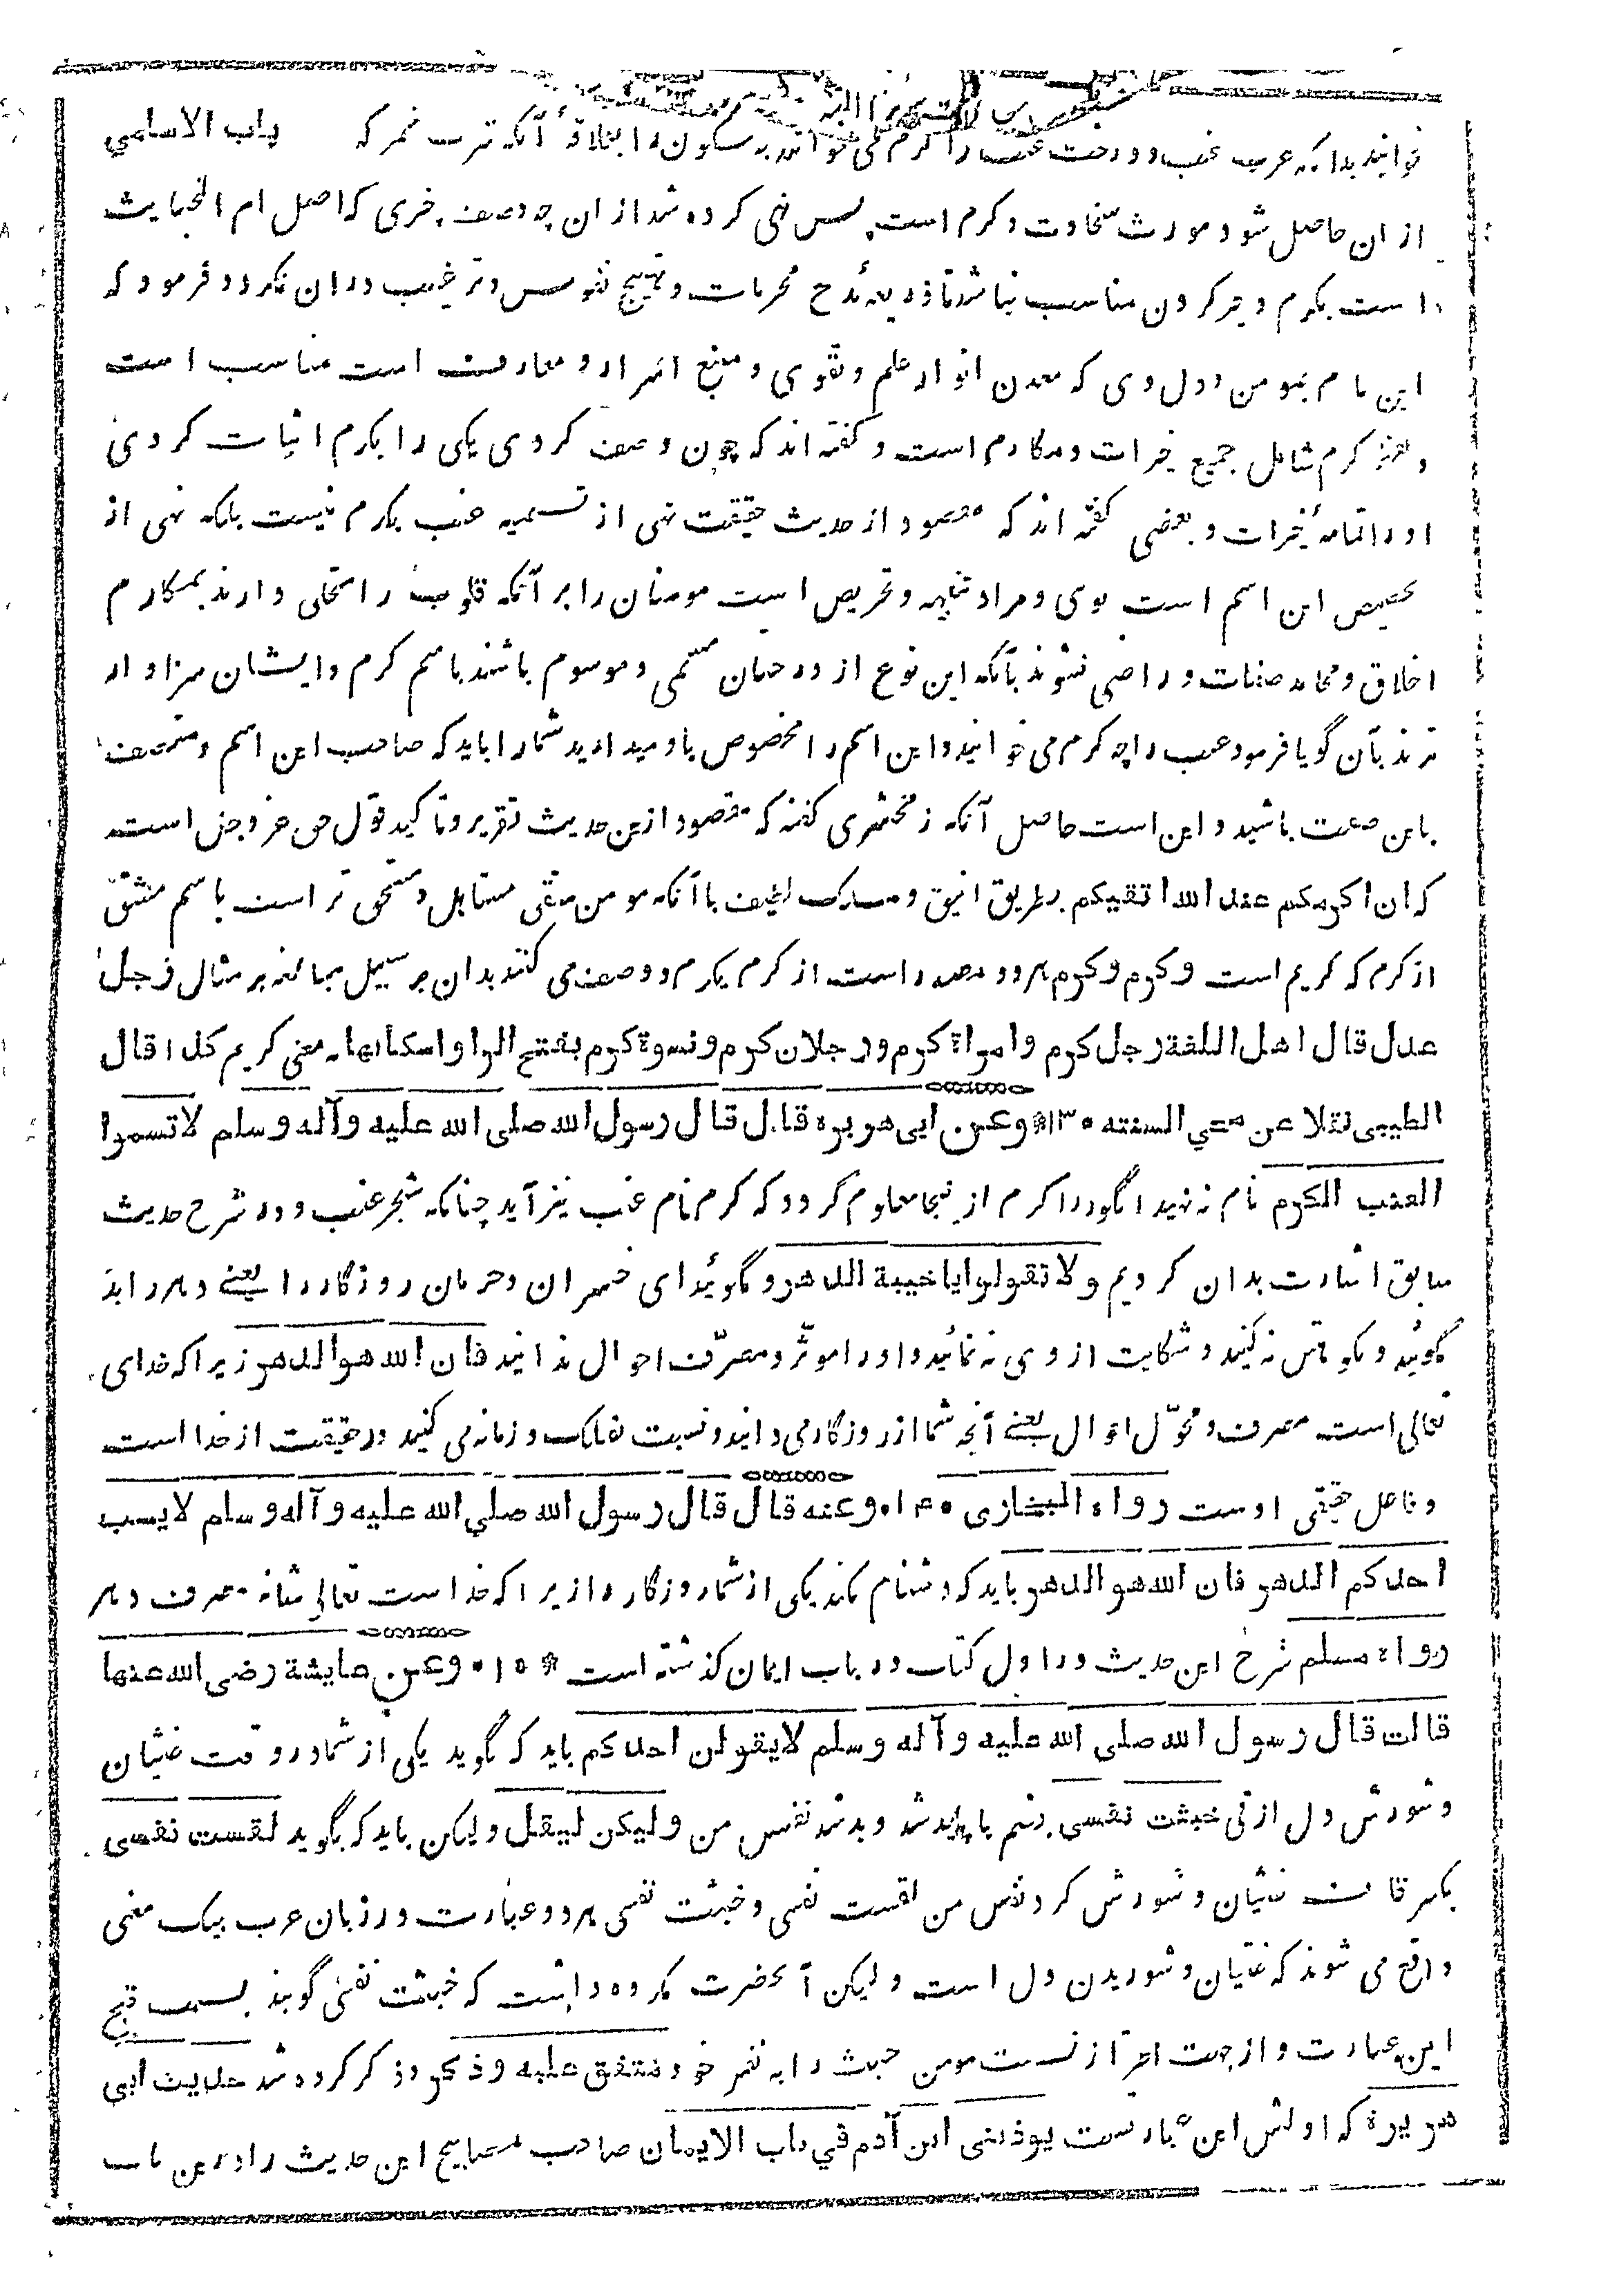 باب الاسامي
خوانند بدانکه عرب عنب و درخت عنب را کرم می خوانند به سکون را بعلاقهٔ آنکه شرب خمر که
از ان حاصل شود مورث سخاوت و کرم است پس نهی کرده شد از ان چه وصف چیزی که اصل ام الخبایث
است بکرم و خیر کردن مناسب نباشد تا ذریعه مدح محرمات و تهییج نفوس و ترغیب در ان نگردد و فرمود که
این نام بمومن و دل وی که معدن انوار علم و تقوی و منبع اسرار و معارف است مناسب است
و لفظ کرم شامل جمیع خیرات و مکارم است و گفته اند که چون وصف کردی یکی را بکرم اثبات کردی
او را تمامهٔ خیرات و بعضی گفته اند که مقصود از حدیث حقیقت نهی از تسمیه عنب بکرم نیست بلکه نهی از
تخصیص این اسم است بوی و مراد تنبیه و تحریص است مومنان را بر آنکه قلوب را متحلی دارند بمکارم
اخلاق و محامد صفات و راضی نشوند بآنکه این نوع از درختان مسمی و موسوم باشند باسم کرم و ایشان سزاوار
ترند بآن گویا فرمود عنب را چه کرم می خوانید و این اسم را مخصوص باو میدارید شمارا باید که صاحب این اسم و متصف
باین صفت باشید و این است حاصل آنکه زمخشری گفته که مقصود ازین حدیث تقریر و تاکید قول حق عز و جل است
که ان اکرمکم عند الله اتقیکم بطریق انیق و مسلک لطیف با آنکه مومن متقی مستاهل و مستحق تر است باسم مشتق
از کرم که کریم است و کرم و کرم هر دو مصدر است از کرم یکرم و وصف می کنند بدان بر سبیل مبالغه بر مثال رجل
عدل قال اهل اللغة رجل کرم و امراة کرم و رجلان کرم و نسوة کرم بفتح الرا و اسکانها بمعنی کریم کذا قال
الطیبی نقلا عن محي السنته ۱۳۰ * و عن ابی هریره قال قال رسول الله صلی الله علیه و آله و سلم لا تسموا
العنب الکرم نام نه نهید انگور را کرم از ینجا معلوم گردد که کرم نام عنب نیز آید چنانکه شجر عنب و در شرح حدیث
سابق اشارت بدان کردیم و لا تقولوا یا خیبة الدهر و مگوئید ای خسران و حرمان روزگار را یعنے دهر را بد
مگوئید و نکوهش نه کنید و شکایت از وی نه نمائید و او را موثّر و مصرّف احوال ندانید فان الله هو الدهر زیرا که خدای
تعالی است مصرف و محوّل احوال یعنے آنچه شما از روزگار می دانید و نسبت بفلک و زمانه می کنید در حقیقت از خدا است
و فاعل حقیقی اوست رواه البخاری ۱۴۰ و عنه قال قال رسول الله صلي الله علیه و آله و سلم لا یسب
احدکم الدهر فان الله هو الدهر باید که دشنام نکند یکی از شما روزگار را زیرا که خدا است تعالی شانه مصرف دهر
رواه مسلم شرح این حدیث در اول کتاب در باب ایمان گذشته است * ۱۵۰ و عن عایشة رضی الله عنها
قالت قال رسول الله صلی الله علیه و آله و سلم لا یقولن احدکم باید که نگوید یکی از شما در وقت غثیان
و شورش دل از قی خبثت نفسی بضم با پلید شد و بد شد نفس من و لیکن لیقل و لیکن باید که بگوید لقست نفسی
بکسر قاف غثیان و شورش کرد نفس من لقست نفسی و خبثت نفسی هر دو عبارت در زبان عرب بیک معنی
واقع می شوند که غثیان و شوریدن دل است و لیکن آنحضرت مکروه داشت که خبثت نفسی گویند بسبب قبح
این عبارت و از جهت احتراز نسبت مومن خبث را به نفس خود متفق علیه و ذکر و ذکر کرده شد حدیث ابی
هریرة که اولش این عبارتست یوذینی ابن آدم في باب الایمان صاحب مصابیح این حدیث را درین باب